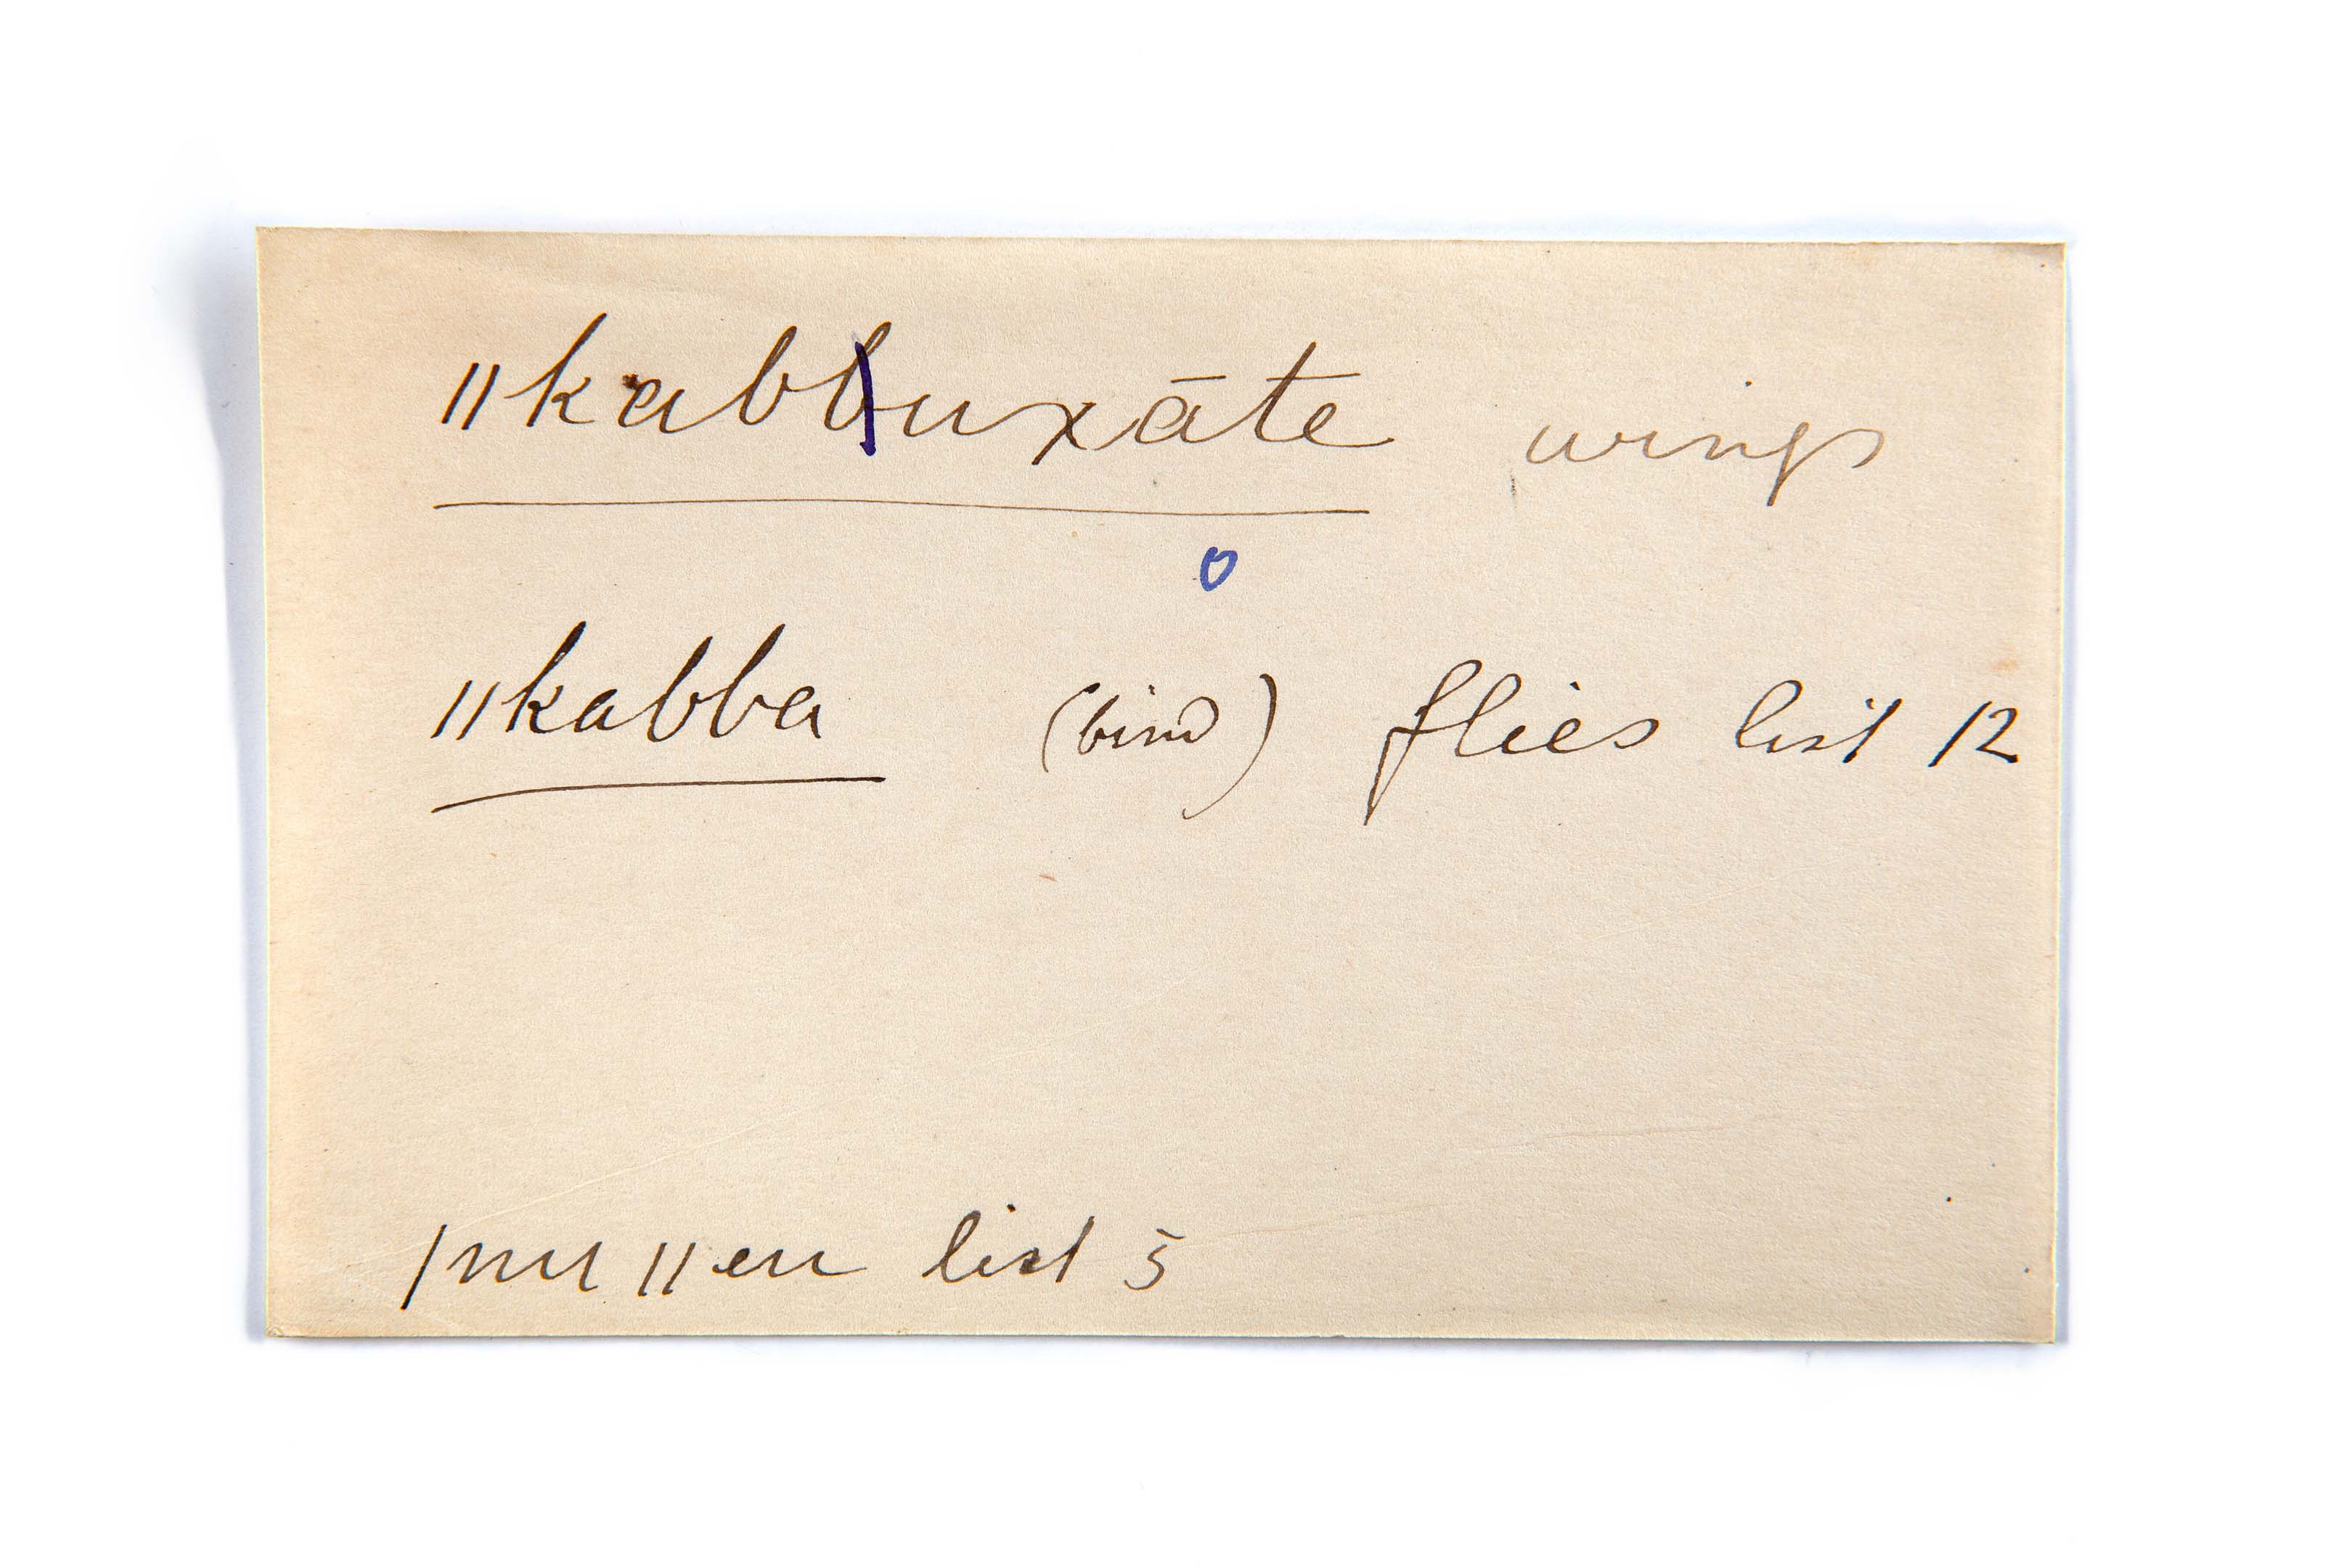 ǁkabbuxāte wings
o
ǁkabba (bird) flies list 12
ǀnuǁen list 5